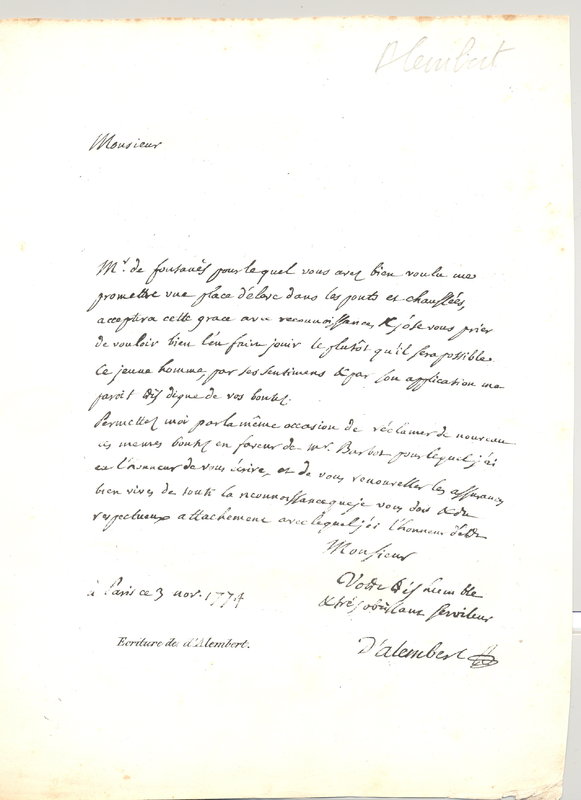 Alembert
Monsieur
Mr. de fontanès pour lequel vous avez bien voulu me
promettre une place d'éleve dans les ponts et chaussées,
acceptera cette grace avec reconnoissance, & j'ose vous prier
de vouloir bien l'en faire jouir le plutôt qu'il sera possible
Ce jeune homme par ses sentimens & par son application me
paroît très digne de vos bontés.
Permettez moi par la même occasion de réclamer de nouveau
ces memes bontés en faveur de mr. Barbot pour lequel j'ai
eu l'honneur de vous écrire, et de vous renouveller les assurances
bien vives de toute la reconnoissance que je vous dois & du
respectueux attachement avec lequel j'ai l'honneur d'etre
Monsieur
Votre très humble
& très obéissant serviteur
à Paris ce 3 nov. 1774
D'alembert
Ecriture de d'Alembert.